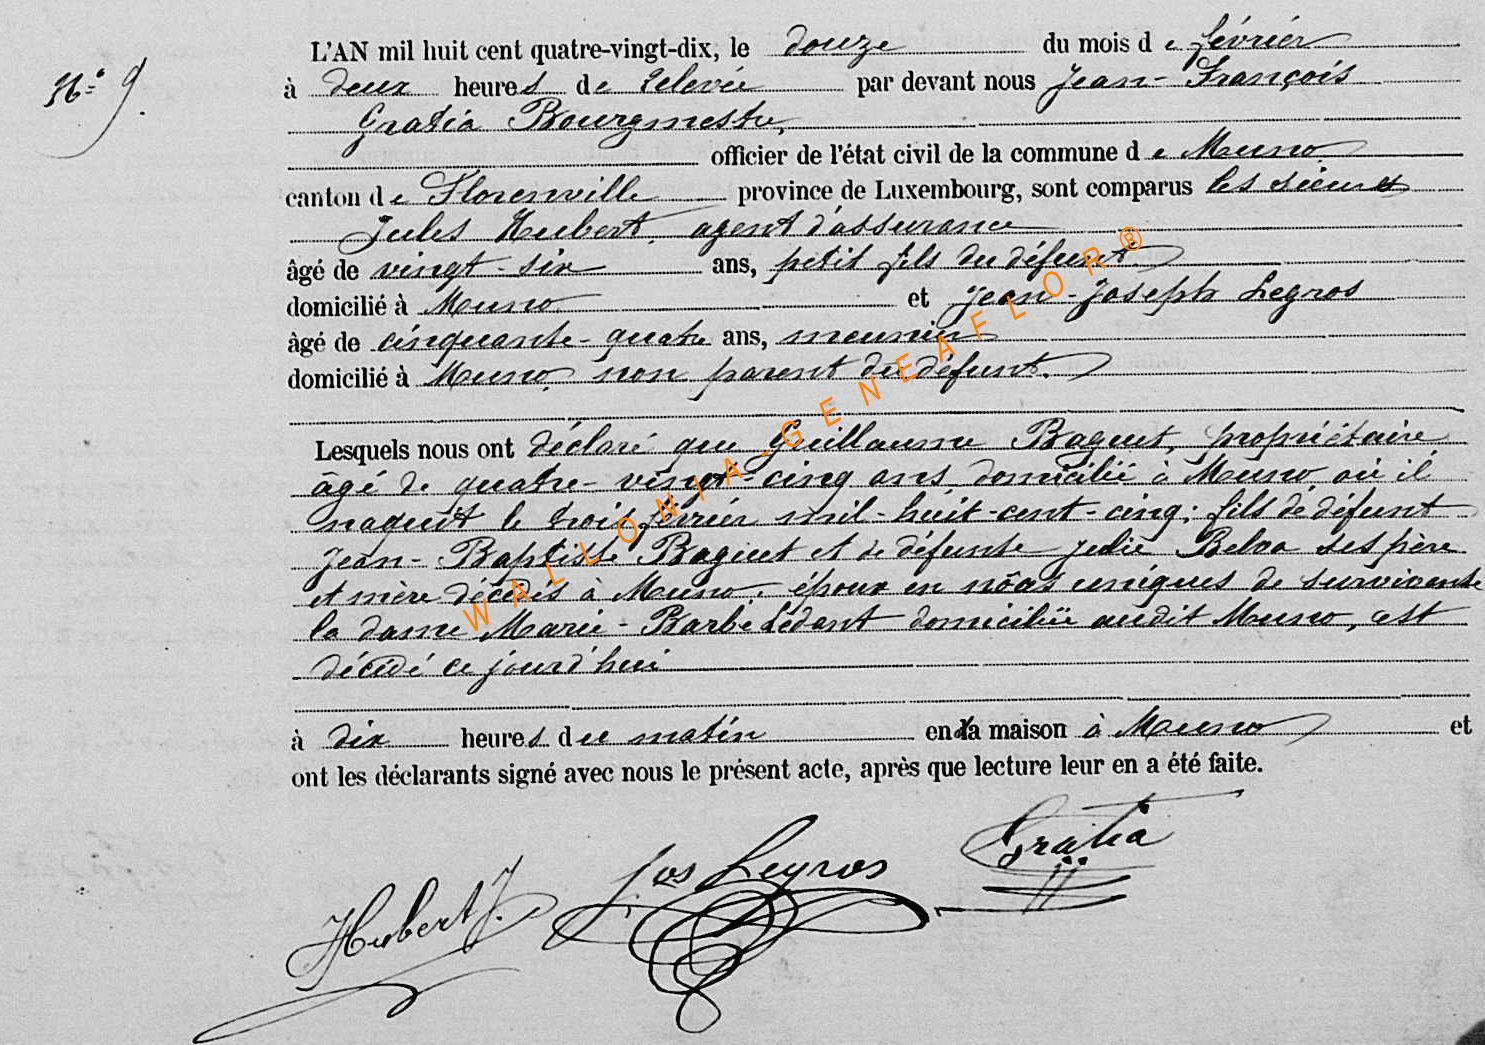 N.º 9.
L'AN mil huit cent quatre-vingt-dix, le douze du mois d e février
à deux heures de relevée par devant nous Jean-François
Gratia Bourgmestre,
officier de l'état civil de la commune d e Muno
canton de Florenville province de Luxembourg, sont comparus les sieurs
Jules Hubert, agent d'assurance
âgé de vingt-six ans, petit fils du défunt
domicilié à Muno et Jean-Joseph Legros
âgé de cinquante-quatre ans, meunier
domicilié à Muno, non parent du défunt.
Lesquels nous ont déclaré que Guillaume Baguet, propriétaire
âgé de quatre-vingt-cinq ans domicilié à Muno où il
naquit le trois février mil-huit-cent-cinq; fils de défunt
Jean-Baptiste Baguet et de défunte Julie ses père
et mère décédés à Muno, époux en uniques de survivante
la dame Marie-Barbe Lédant domiciliée audit Muno, est
décédé ce jourd'hui
à dix heures du matin en la maison à Muno et
ont les déclarants signé avec nous le présent acte, après que lecture leur en a été faite.
Hubert J. Jos Legros Gratia
WALLONIA-GENEAFLOR®